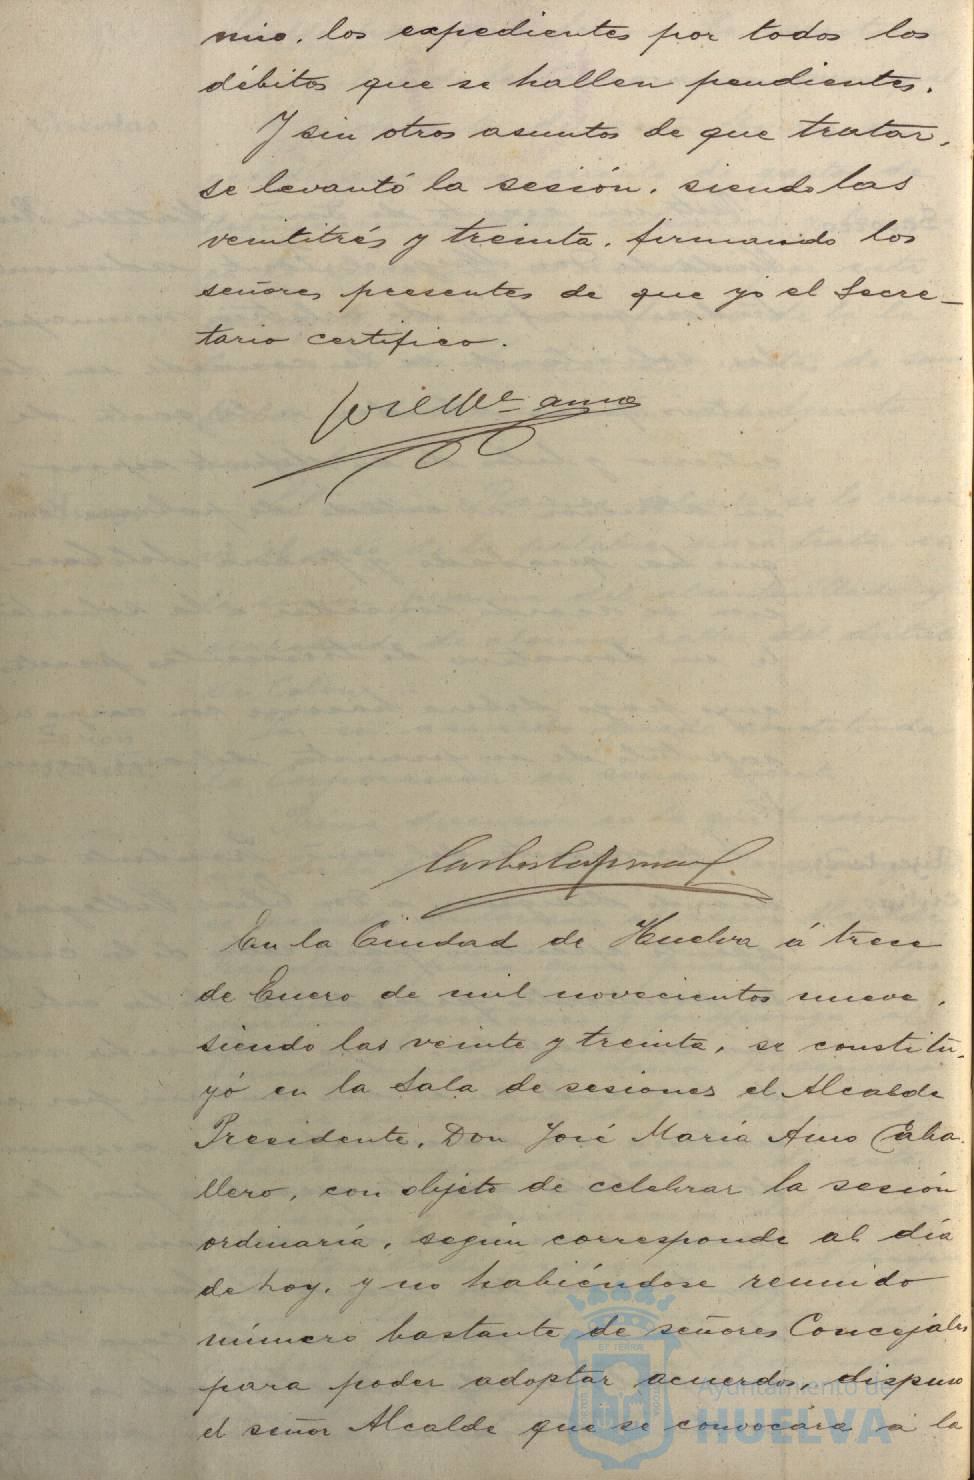 mio, los expedientes por todos los
débitos que se hallen pendientes.
Y sin otros asuntos de que tratar,
se levantó la sesión, siendo las
veintitrés y treinta, firmando los
señores presentes de que yo el Secre-
tario certifico.
José Mª Amo
En la Ciudad de Huelva á trece
de Enero de mil novecientos nueve,
siendo las veinte y treinta, se constitu-
yó en la Sala de sesiones el Alcalde
Presidente, Don José María Amo Caba-
llero, con objeto de celebrar la sesión
ordinaria, según corresponde al día
de hoy, y no habiéndose reunido
número bastante de señores Concejales
para poder adoptar acuerdos, dispuso
el señor Alcalde que se convocára á la
Ayuntamiento de
HUELVA